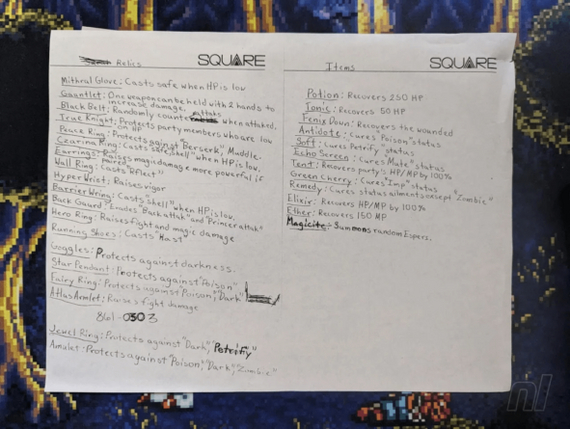 Relics
SQUARE
Mithral Glove: Casts safe when HP is low
Gauntlet: One weapon can be held with 2 hands to
increase damage.
Black Belt: Randomly counter attacks when attacked.
True Knight: Protects party members who are low
on HP
Peace Ring: Protects against "Berserk", Muddle-
Czarina Ring: Casts safe, shell" when HP is low.
Earrings: Raises magic damage more powerful if
paired
Wall Ring: Casts "Reflect"
Hyper Wrist: Raises vigor
Barrier Wring: Casts shell" when HP is low.
Back Guard: "Evades "Back attak" and "Pincer attak"
Hero Ring: Raises fight and magic damage
Running Shoes: Casts Hast
Goggles: Protects against darkness.
Star Pendant: Protects against "Poison"
Fairy Ring: Protects against "Poison", "Dark"
Atlas Armlet: Raises fight damage
861-0303
Jewel Ring: Protects against "Dark", "Petrifiy"
Amulet: Protects against "Poison", "Dark", "Zombie"
Items
SQUARE
Potion: Recovers 250 HP
Tonic: Recovers 50 HP
Fenix Down: Recovers the wounded
Antidote: Cures Poison" status
Soft: Cures Petrify" status
Echo Screen: Cures Mute" status
Tent: Recovers party's HP/MP by 100%
Green Cherry: Cures Imp" status
Remedy: Cures status ailments except "Zombie"
Elixir: Recovers HP/MP by 100%
Ether: Recovers 150 MP
Magicite: Summons random Espers.
nl